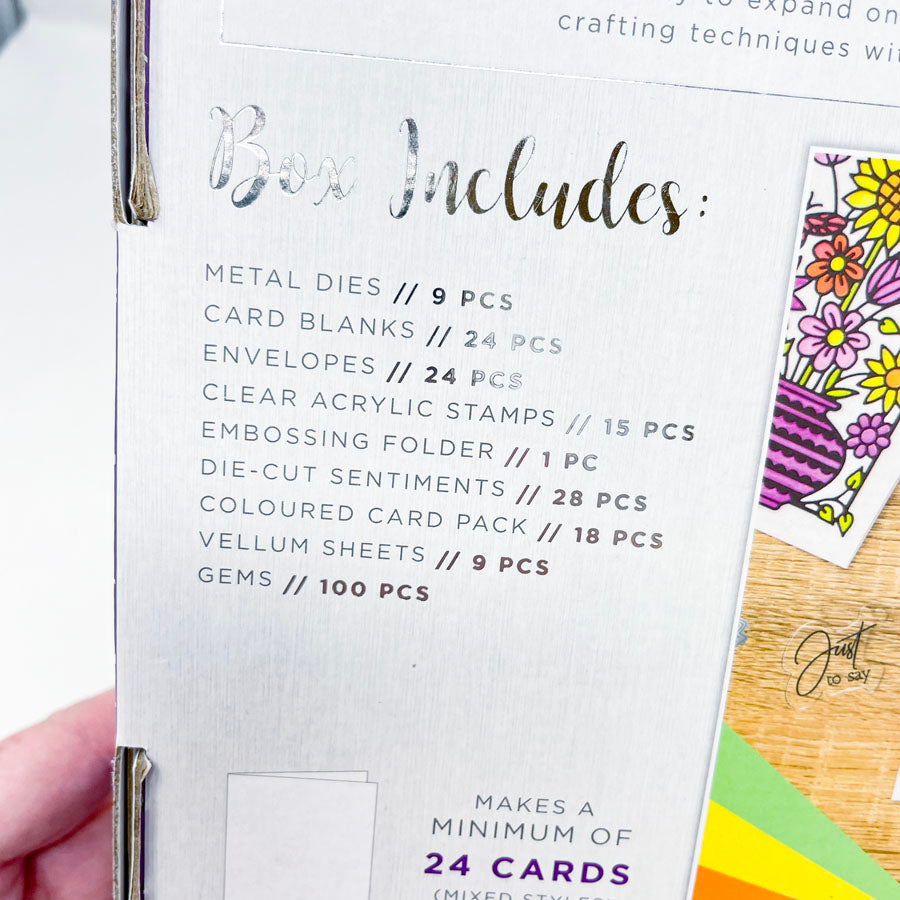 to expand on
crafting techniques
Box Includes:
METAL DIES // 9 PCS
CARD BLANKS // 24 PCS
ENVELOPES // 24 PCS
CLEAR ACRYLIC STAMPS // 15 PCS
EMBOSSING FOLDER // 1 PC
DIE-CUT SENTIMENTS // 28 PCS
COLOURED CARD PACK // 18 PCS
VELLUM SHEETS // 9 PCS
GEMS // 100 PCS
Just
to say
MAKES A
MINIMUM OF
24 CARDS
(MIXED STYLES)